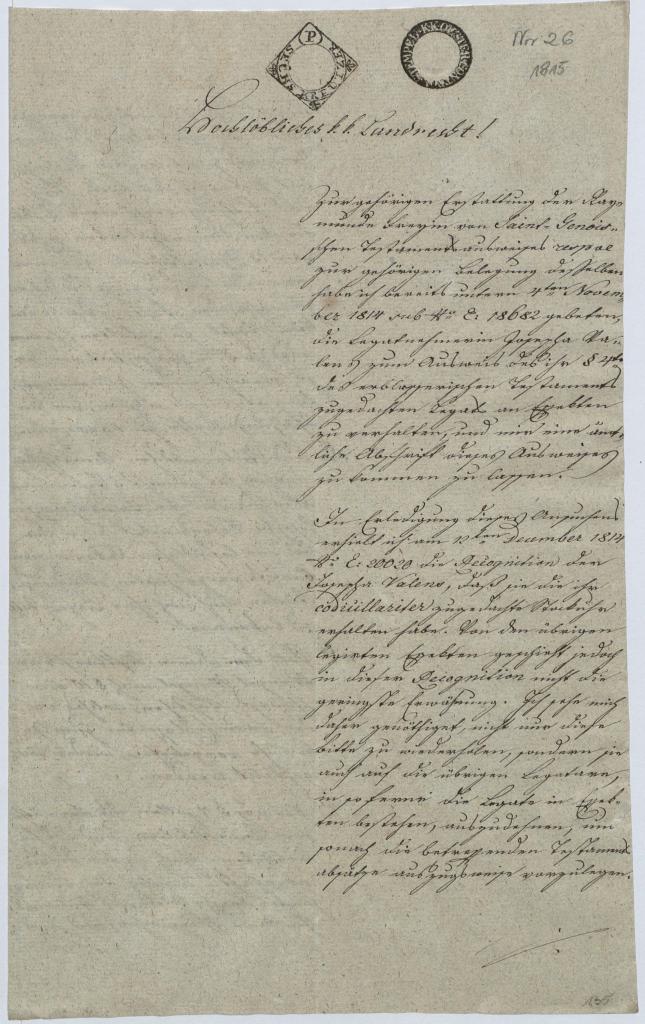 SECHS KREUTZER
(P)
STEMPEL K.K. OESTER
Nro 26
1815
Hochlöbliches k. k. Landrecht!
Zur gehörigen Erstattung der Ray-
munde Freyin von Saint-Genois-
schen Testamentsausweises respve
zur gehörigen Belegung desselben
habe ich bereits unterm 4ten Novem-
ber 1814 sub No E: 18682 gebeten,
die Legatnehmerin Josepha Va-
lens zum Ausweis des ihr §
des erblasserischen Testaments
zugedachten Legats an Effekten
zu verhalten, und mir eine ämt-
liche Abschrift dieses Ausweises
zu kommen zu lassen.
In Erledigung dieses Ansuchens
erhielt ich am 12ten December 1814
No E: 20020 die Recognition der
Josepha Valens, daß sie die ihr
codicillariter zugedachte Stockuhr
erhalten habe. Von den übrigen
legirten Effekten geschieht jedoch
in dieser Recognition nicht die
geringste Erwähnung. Ich sehe mich
daher genöthiget, nicht nur diese
Bitte zu wiederholen, sondern sie
auch auf die übrigen Legatare,
in so ferne die Legate in Effek-
ten bestehen, auszudehnen, um
sonach die betreffenden Testaments
absätze auszugsweise vorzulegen.